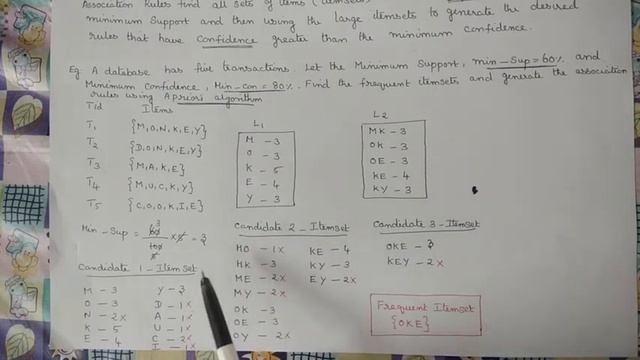 Association Rules find all sets of items (itemset
minimum Support and then using the large itemsets to generate the desired
rules that have Confidence greater than the minimum confidence.
Eg. A database has five transactions. Let the Minimum Support, min-Sup = 60% and
Minimum confidence, Min-con = 80%. Find the frequent itemsets and generate the association
rules using Apriori algorithm
Tid Items
T1 {M,O,N,K,E,Y}
T2 {D,O,N,K,E,Y}
T3 {M,A,K,E}
T4 {M,U,C,K,Y}
T5 {C,O,O,K,I,E}
L1
M - 3
O - 3
K - 5
E - 4
Y - 3
L2
MK - 3
OK - 3
OE - 3
KE - 4
KY - 3
Min-Sup = 60/100 × 5 = 3
Candidate 1-Itemset
M - 3 Y - 3
O - 3 D - 1×
N - 2× A - 1×
K - 5 U - 1×
E - 4 C - 2×
I - 1×
Candidate 2-Itemset
MO - 1× KE - 4
MK - 3 KY - 3
ME - 2× EY - 2×
MY - 2×
OK - 3
OE - 3
OY - 2×
Candidate 3-Itemset
OKE - 3
KEY - 2×
Frequent Itemset
{OKE}